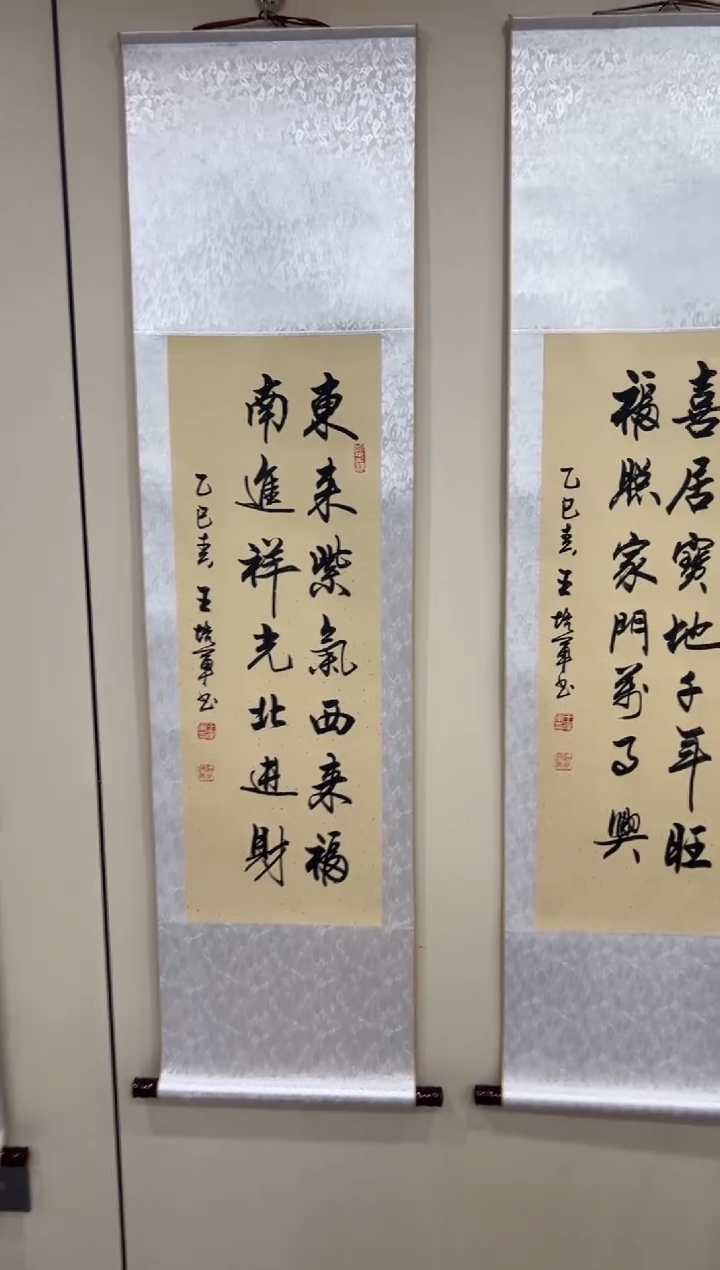 東来紫氣西来福
南進祥光北進財
乙巳春 王培軍书
喜居寶地千年旺
福照家門萬事興
乙巳春 王培軍书